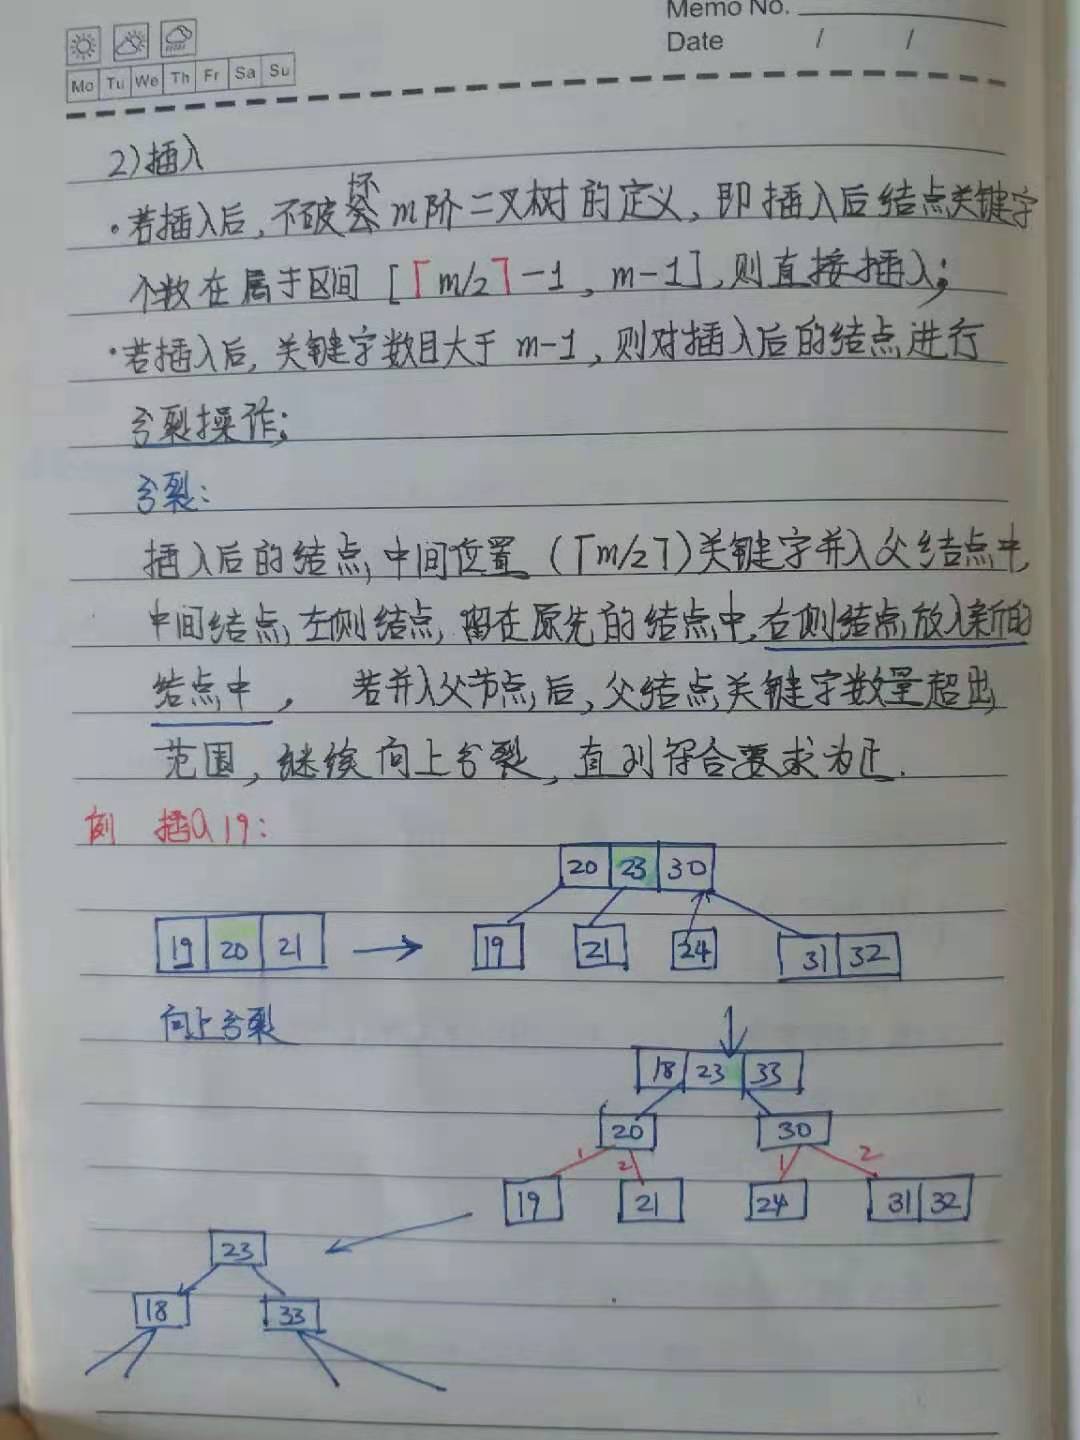 Memo No.
Date / /
Mo Tu We Th Fr Sa Su
2)插入
·若插入后,不破坏m阶二叉树的定义,即插入后结点关键字
个数在属于区间[⌈m/2⌉-1,m-1],则直接插入;
·若插入后,关键字数目大于m-1,则对插入后的结点进行
分裂操作;
分裂:
插入后的结点,中间位置(⌈m/2⌉)关键字并入父结点中,
中间结点,左侧结点,留在原先的结点中,右侧结点放入新的
结点中,若并入父节点后,父结点关键字数量超出
范围,继续向上分裂,直到符合要求为止.
例 插入19:
20 23 30
19 20 21 → 19 21 24 31 32
向上分裂
18 23 33
20 30
1 2 1 2
19 21 24 31 32
23
18 33